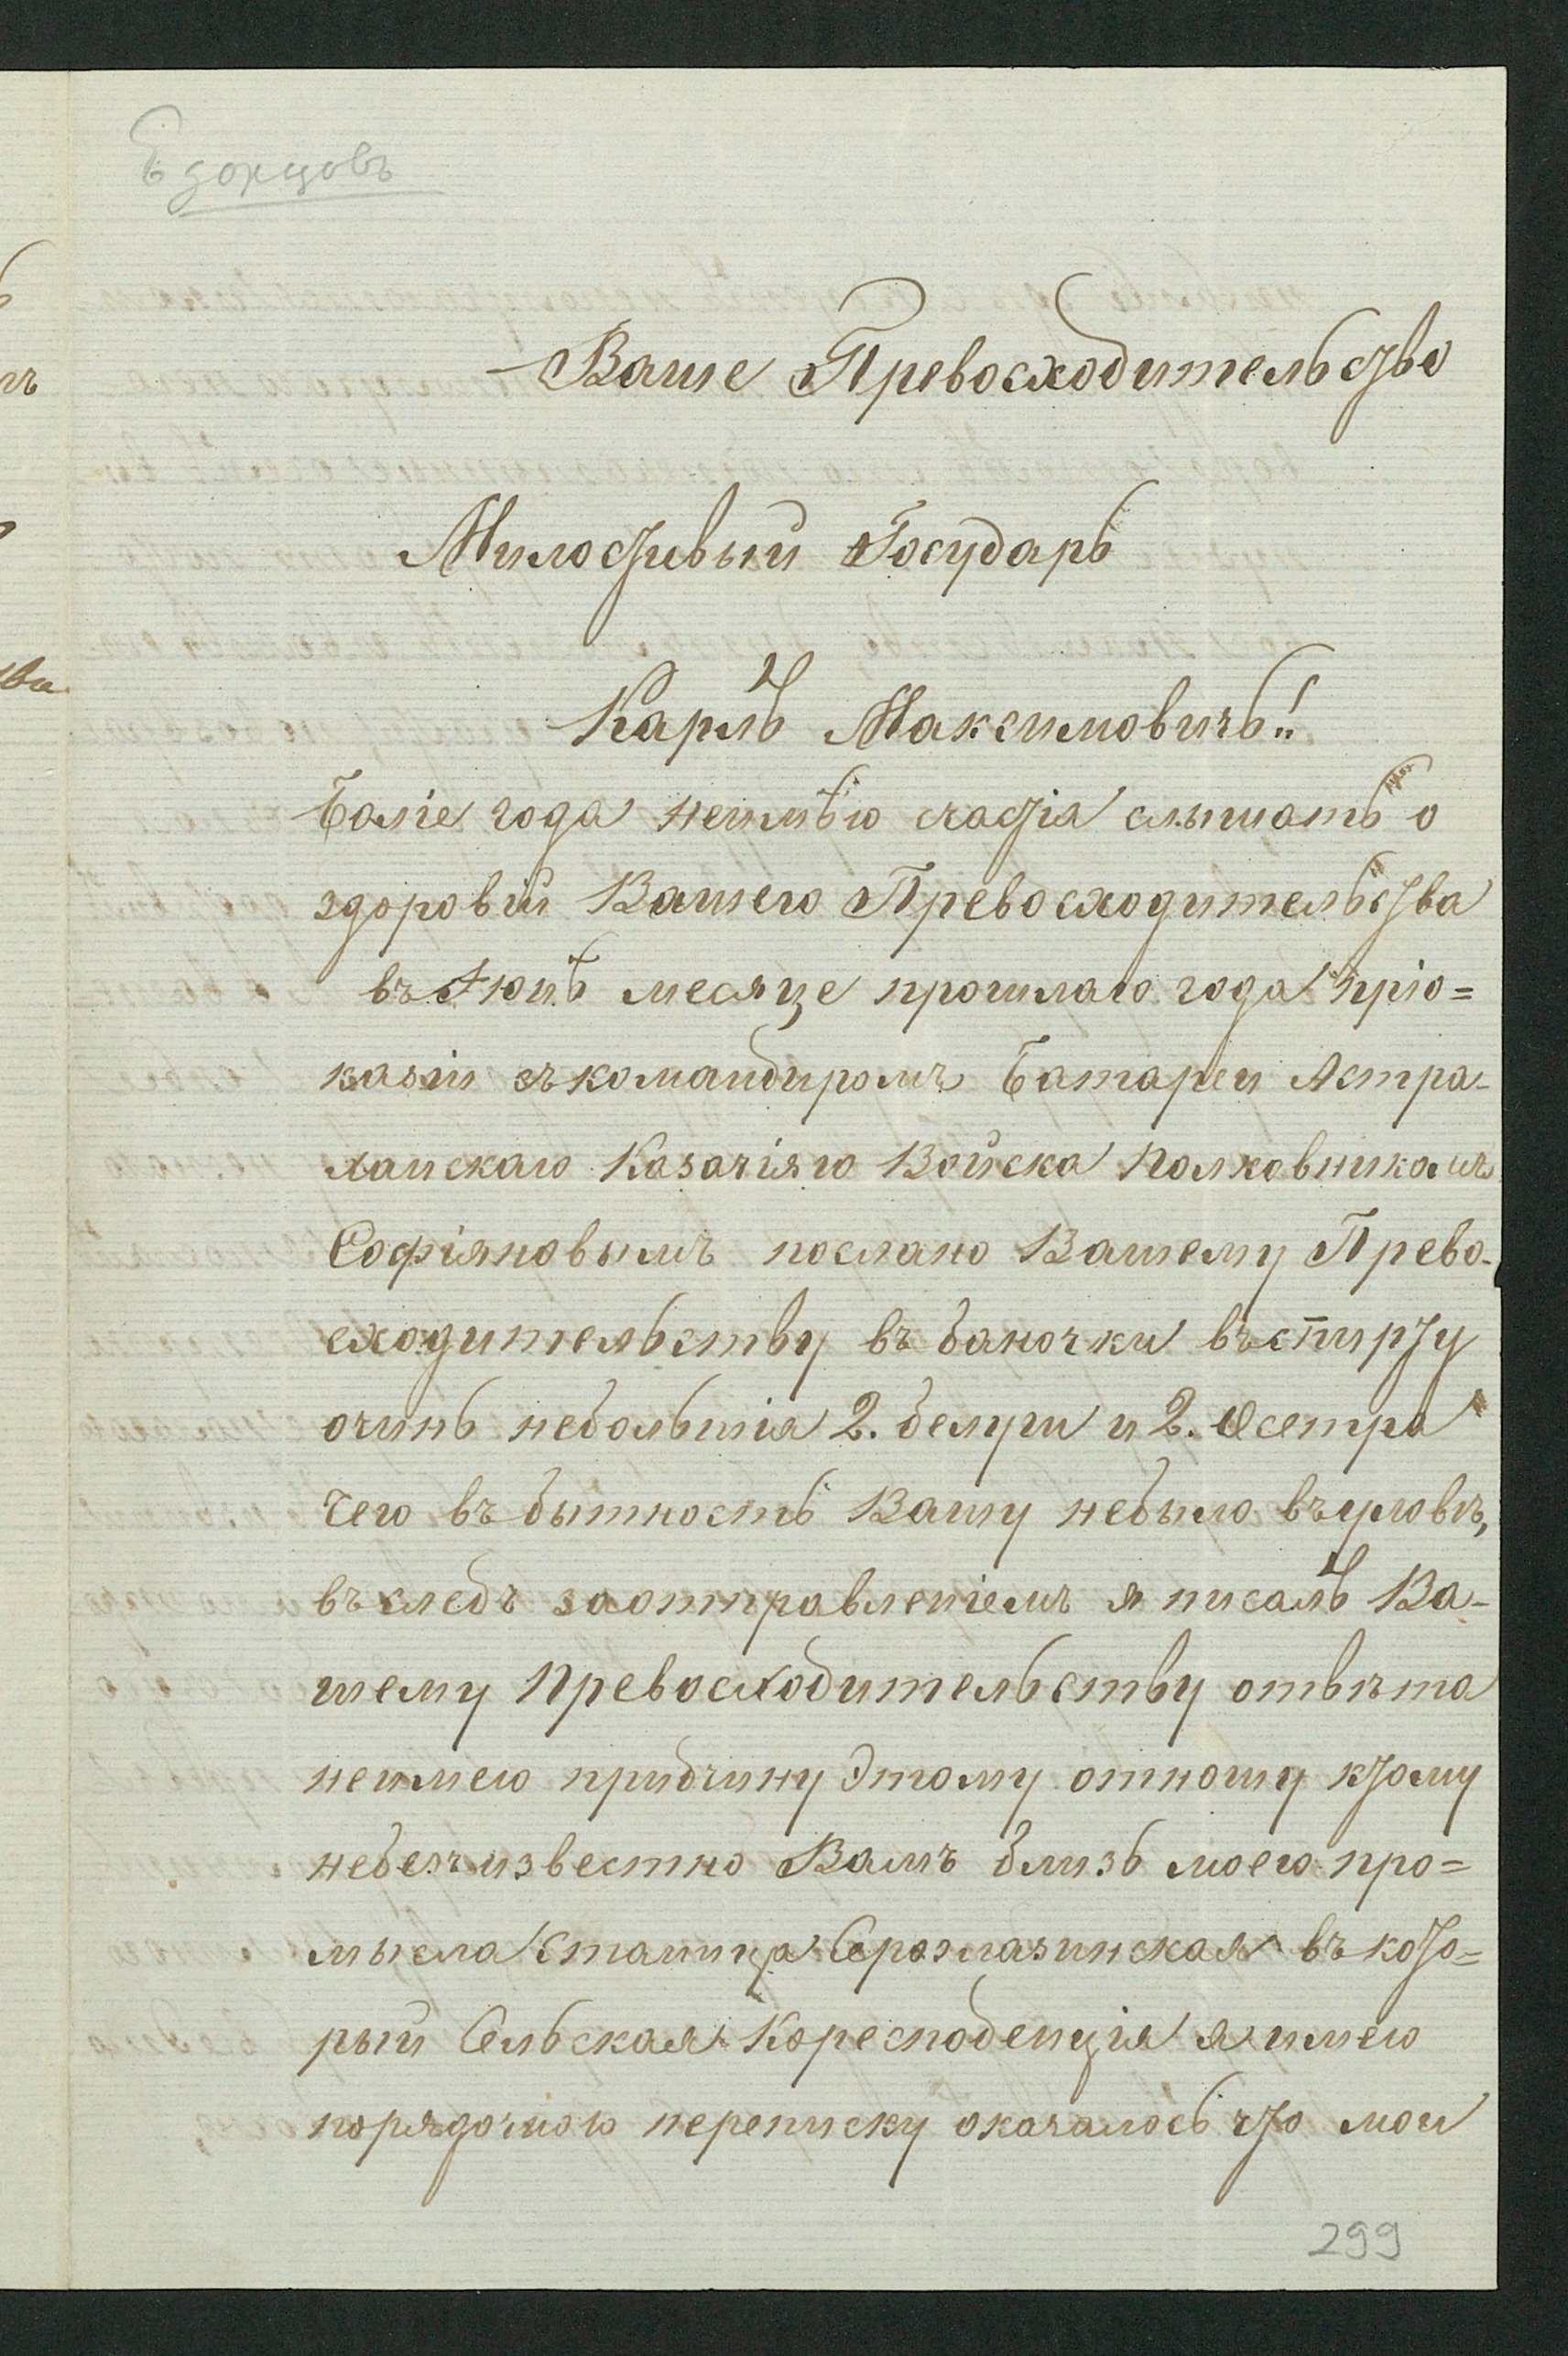 Ваше Превосходительство
Милостивый Государь
Карлъ Максимовичъ!!
Боліе года неимѣю счастія слышать о
здоровіи Вашего Превосходительства
въ Іюнѣ месяце прошлаго года пріо=
казіи съ командиромъ Батареи Астра-
ханскаго Казачіяго Войска Полковникомъ
Софіяновымъ послано Вашему Прево-
сходительству въ баночки въ спирту
очинь небольшія 2. белуги и 2. Осетра
чего въ бытность Вашу небыло въ уловѣ,
въ следъ заотправленіемъ я писалъ Ва-
шему Превосходительству отвѣта
неимею придчину Этому отношу ктому
небезъизвестно Вамъ близь моего про=
мысла Станица Сероглазинская въ кото=
рый Сельская Коресподенція я имею
порядочною переписку оказалось что мои
299